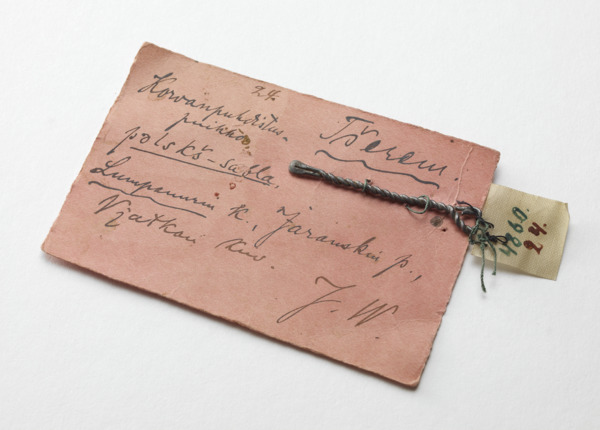 24.
Korvanpuhdistus-
puikko.
Tšerem.
Lumpanurin k., Jaranskin p.,
Vjatkan kuv.
J. W.
4860.
24.